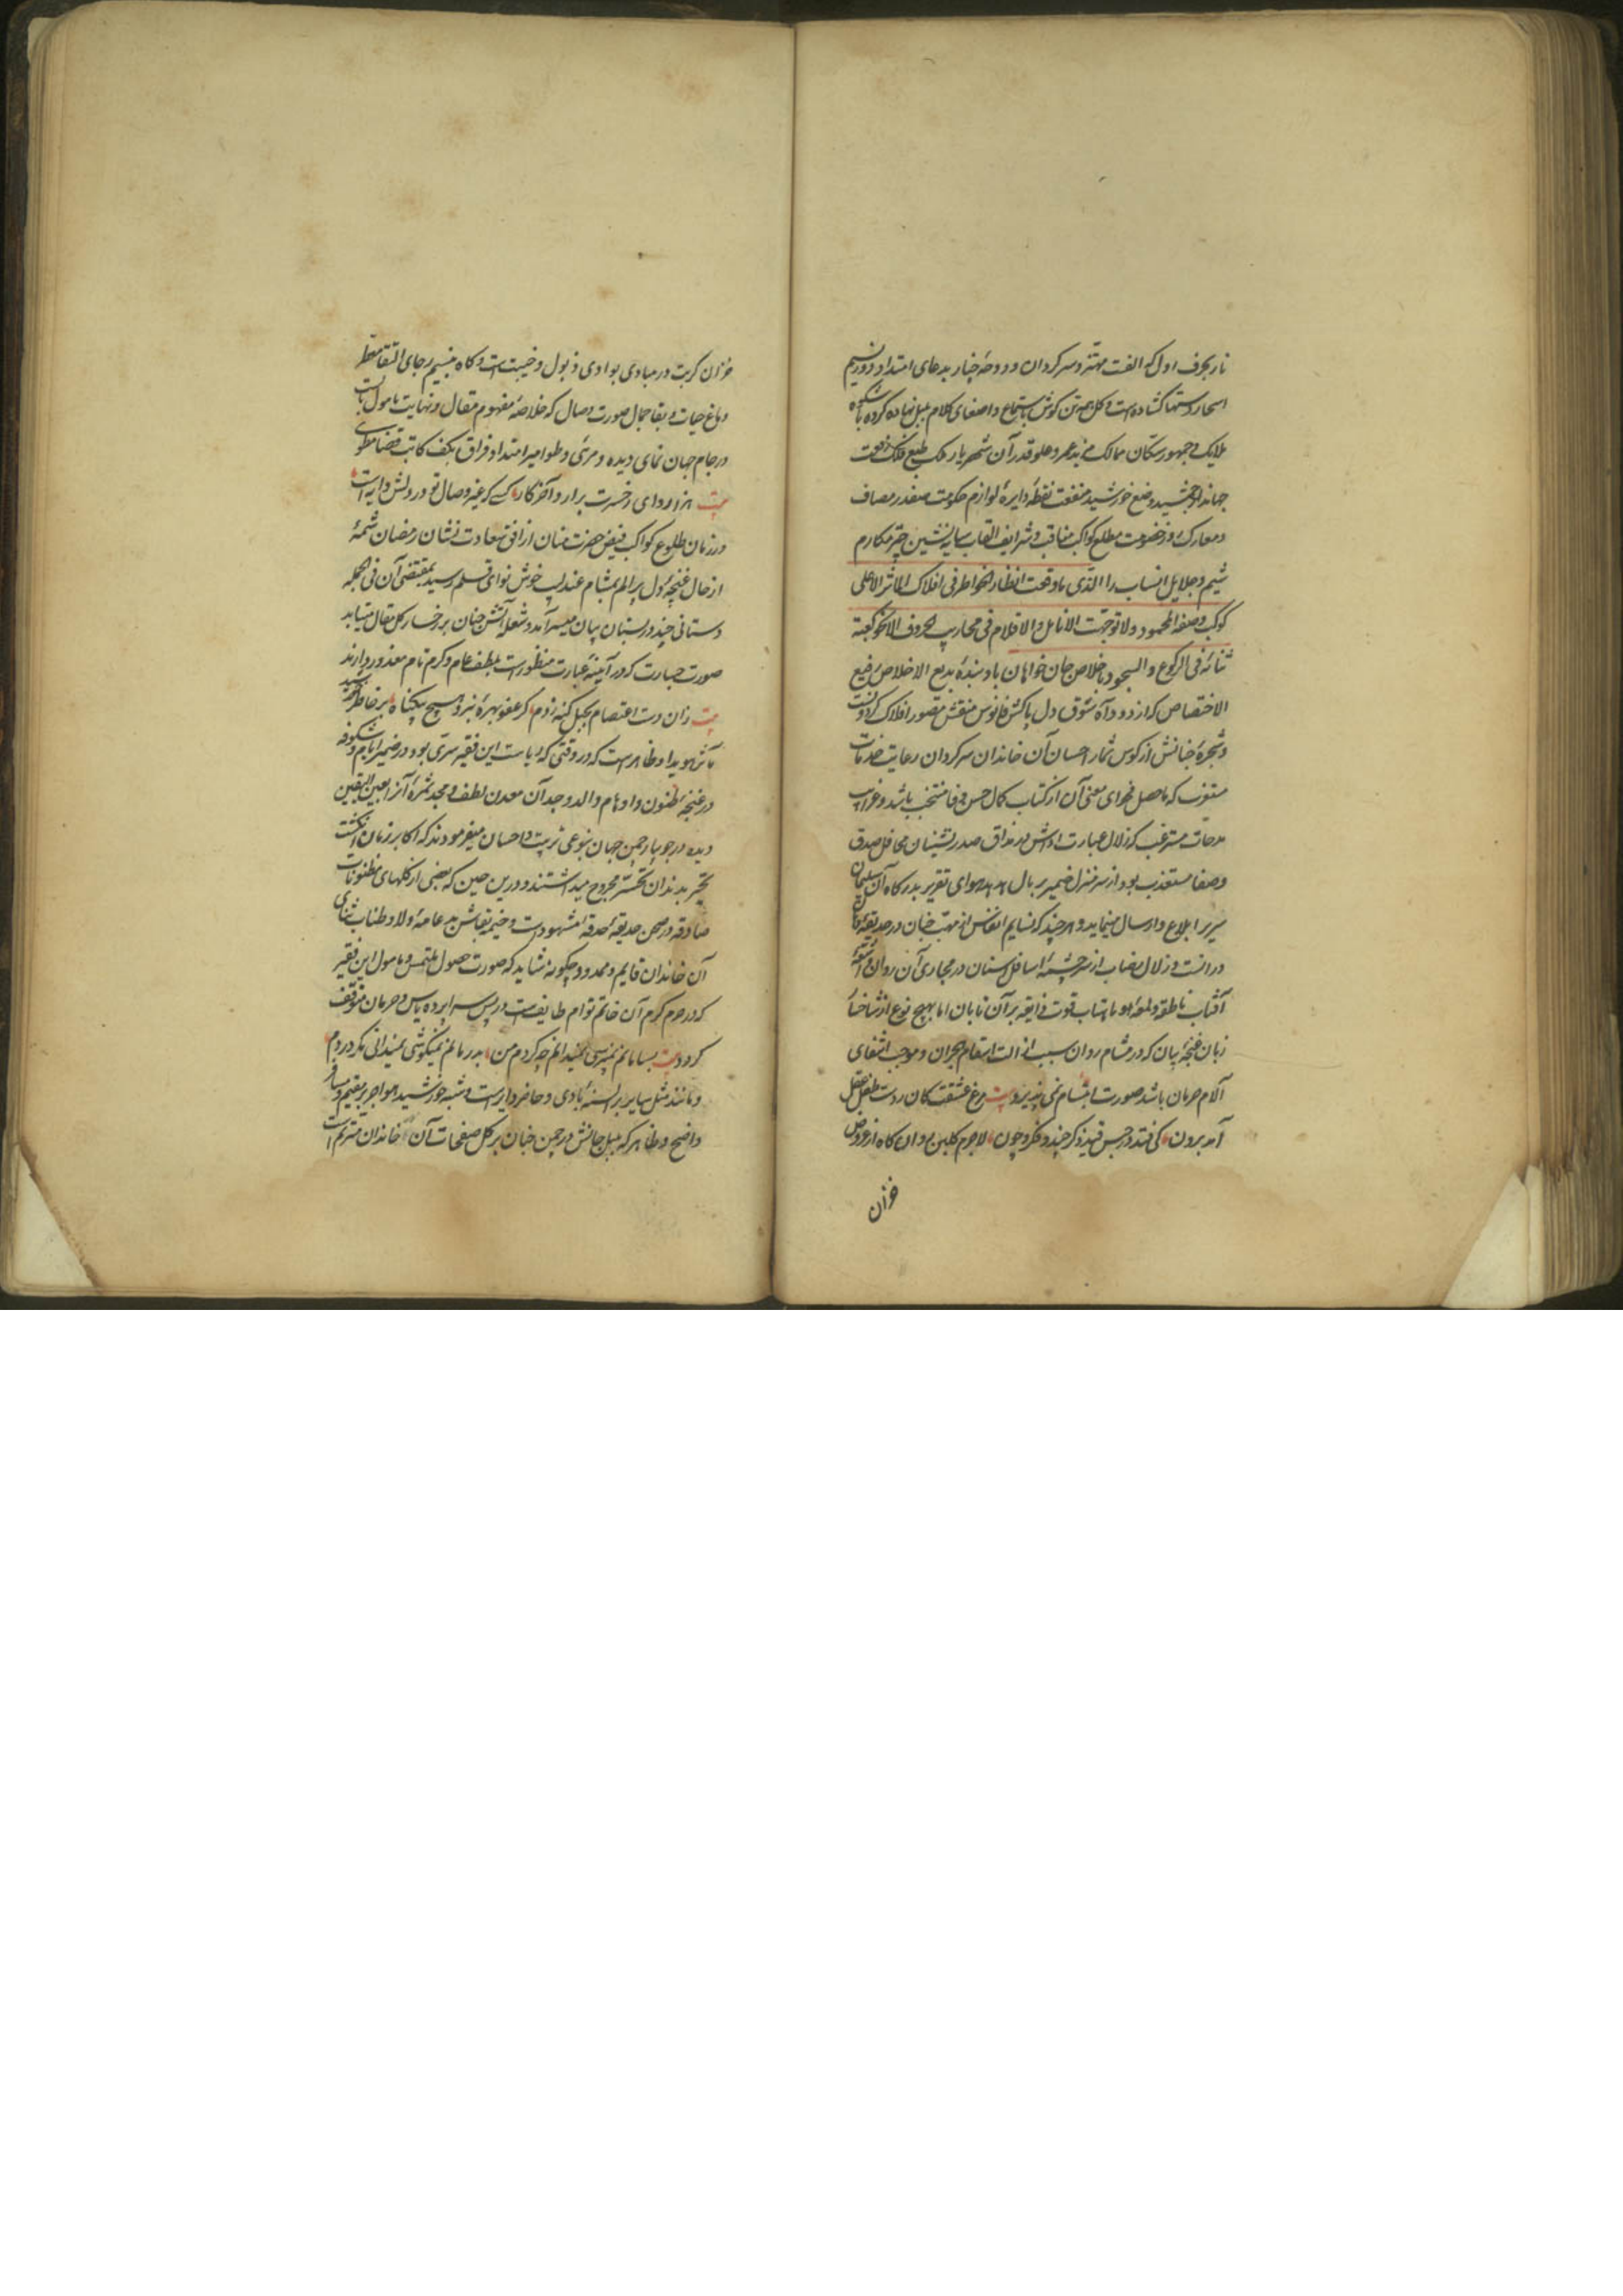 نار بحرف اول که الفت مهتز و سرکردان و دوحهٔ چنار بدعای امتداد دور نسیم
اسحار دستها کشاده است و کل همه تن کوش باستماع و اصغای کلام بلبل نهاده کروه با شکوه
ملایک و جمهور سکان ممالک مزید عمر و علو قدر آن شهریار ملک طبع فلک رفعت
جهاندار جمشید وضع خورشید منفعت نقطهٔ دایرهٔ لوازم حکومت صفدر مصاف
و معارک خصومت مطلع کواکب مناقب و شرایف القاب سایه نشین چتر مکارم
شیم و جلایل انساب را الذی ما وقعت انظار الخواطر فی افلاک المآثر الا علی
کوکب وصفه المحمود و لا توجهت الانامل و الاقلام فی محاریب الحروف الا نحو کعبة
ثنائه فی الرکوع و السجود باخلاص جان خواهان باد بندهٔ بدیع الاخلاص رفیع
الاختصاص که از دود آه شوق دل پاکش فانوس منقش مقصور افلاک کردونست
و شجرهٔ جنانش از کوس ثمار احسان آن خاندان سرکردان رعایت خدمات
که ماحصل فحوای معنی آن از کتاب کمال حسن وفا منتخب باشد و غرایب
مدحات مسترغب که زلال عبارت اداش در مذاق صدرنشینان محافل صدق
و صفا مستعذب بود از سر منزل ضمیر بر بال هدهد هوای تقریر بدرکاه آن سلیمان
سریر ابلاغ و ارسال مینماید و هر چند که نسایم انفاس از مهب جنان در حدیقهٔ
و زلال رضاب از سرچشمهٔ اسافل اسنان در مجاری آن روان و اشعهٔ
آفتاب ناطقه و لمعهٔ ماهتاب قوت ذایقه بر آن تابان اما بهیچ نوع از شاخسار
زبان غنچهٔ بیان که در مشام روان سبب ازالت اسقام هجران و موجب انتفای
آلام حرمان باشد صورت ابتسام نمی پذیرد بیت مرغ عشقت کان ز دست طفل عقل
آمد برون کی فتد در حبس قید ذکر چند و فکر چون لاجرم کلبن روان کاه از عروض
خزان
خزان کربت در مبادی بوادی ذبول و خیبت است و کاه بنسیم رجای التقا مقطر
دماغ حیات و بقا جمال صورت وصال که خلاصهٔ مفهوم مقال و نهایت مامول بالست
در جام جهان نمای دیده و مرئی و طوامیر امتداد فراق بکف کاتب قضا مطوی
بیت برآرد آخر کار کسی که غیر وصال تو در دلش
در زمان طلوع کواکب فیض حضرت منان از افق سعادت نشان رمضان شمهٔ
از حال غنچهٔ دل پر الم بمشام عندلیب خوش نوای قلم رسید بمقتضی آن فی الجمله
دستانی چند در بستان بیان میسر آمد و شعلهٔ آتش جنان بر رخسار کل مقال میتابد
صورت جسارت که در آیینهٔ عبارت منظورست بلطف عام و کرم تام معذور دارند
بیت زان دست اعتصام بحبل کنه زدم کز عفو بهره نبرد هیچ بیکناه بر خاطر خورشید
مآثر هویدا و ظاهر است که در وقتی که این فقیر سری بود در ضمیر و شکوفه
در غنچهٔ ظنون و اوهام والد و جد آن معدن لطف و مجد ثمرهٔ آنرا بعین الیقین
دیده در جویبار چمن جهان بنوعی تربیت و احسان میفرمودند که اکابر زمان انکشت
تحیر بدندان تحسر مجروح میداشتند و درین حین که بعضی از کلهای مظنونات
صادقه در صحن حدیقهٔ حدقه مشهودست و خیمهٔ بقاش بدعامهٔ ولا و طناب ثنای
آن خاندان قایم و ممدود چکونه شاید که صورت حصول ملتمس و مامول این فقیر
که در حرم کرم آن خاتم توام طایفست در پس سراپردهٔ یاس و حرمان متوقف
کردد بیت بسامانم نمی پرسی نمیدانم چه کردم من بدرمانم نمیکوشی نمیدانی مکر دردم
و مانند مثل سایر بر السنهٔ بادی و حاضر دایر است و شبه خورشید هواجر بر مقیم و مسافر
واضح و ظاهر که بلبل جانش در چمن جنان بر کل صفحات آن خاندان مترنم است